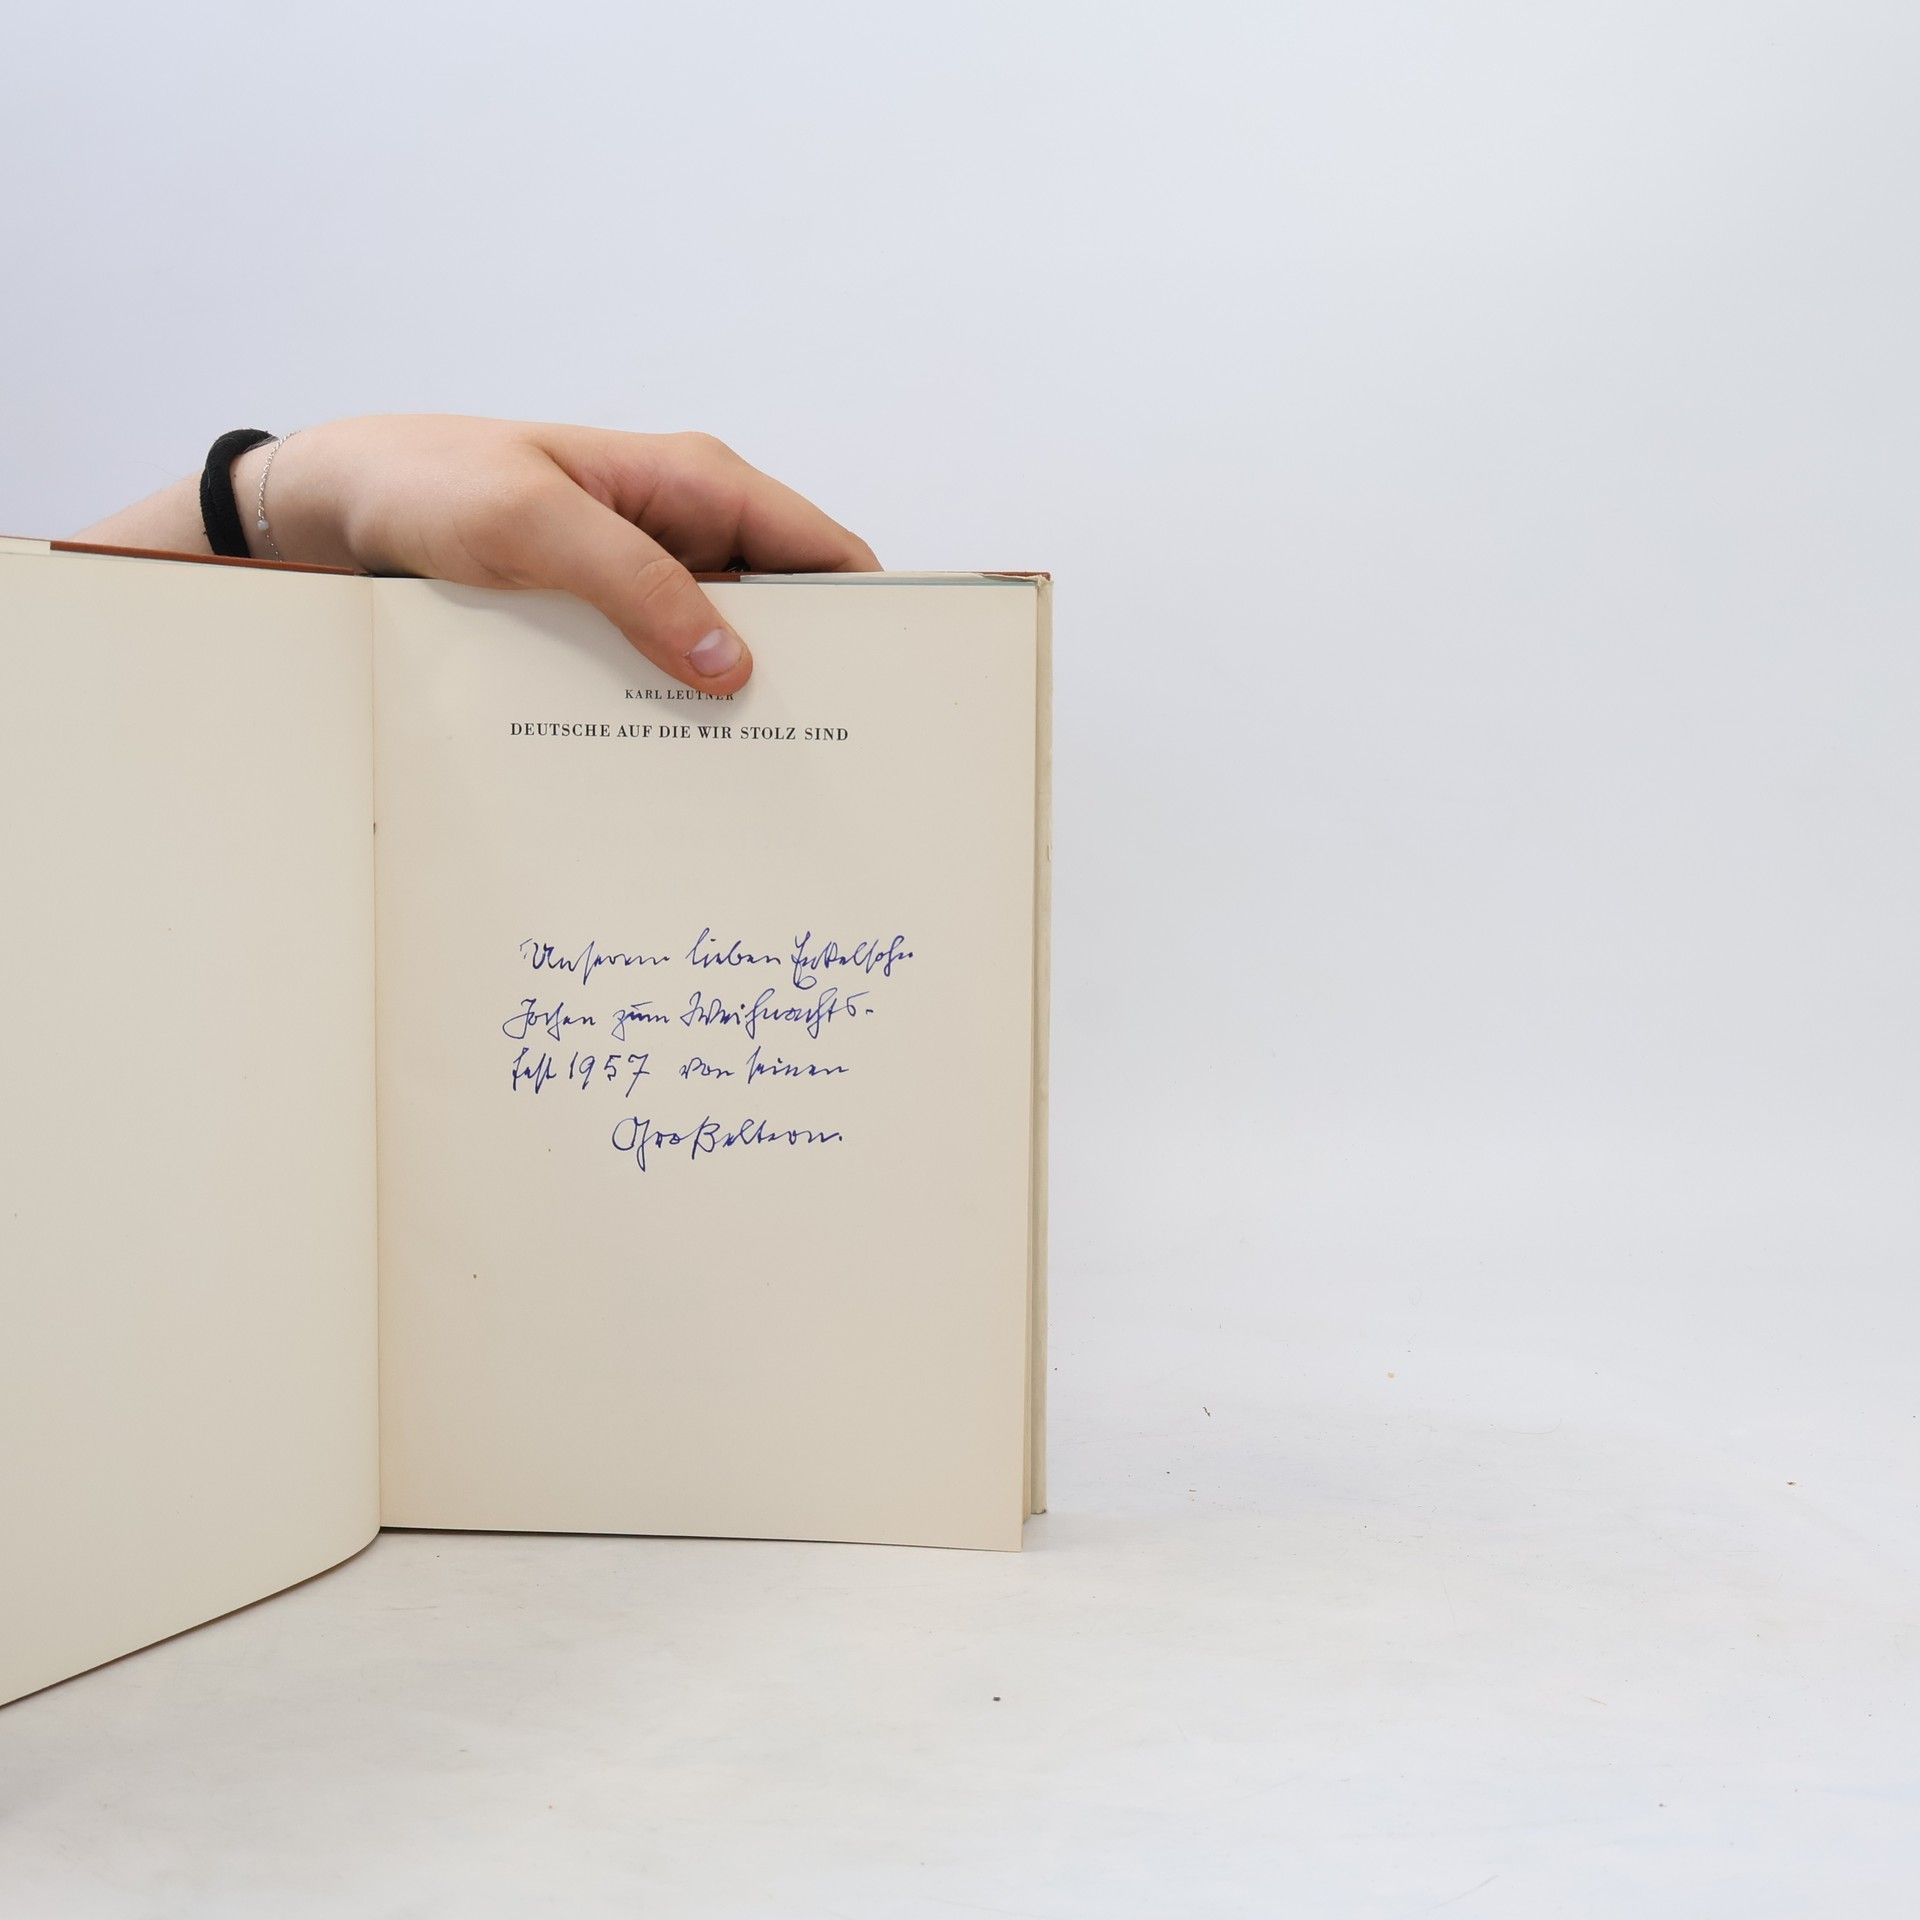 KARL LEUTNER
DEUTSCHE AUF DIE WIR STOLZ SIND
Unserem lieben Enkelsohn
Jochen zum Weihnachts-
fest 1957 von seinen
Großeltern.